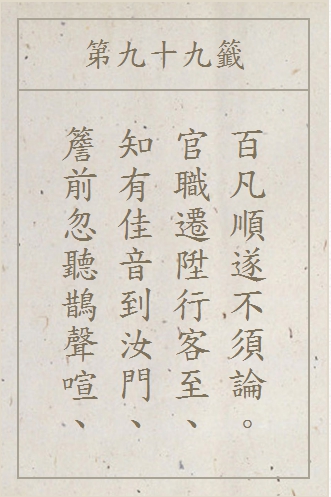 第九十九籤
簷前忽聽鵲聲喧、
知有佳音到汝門、
官職遷陞行客至、
百凡順遂不須論。